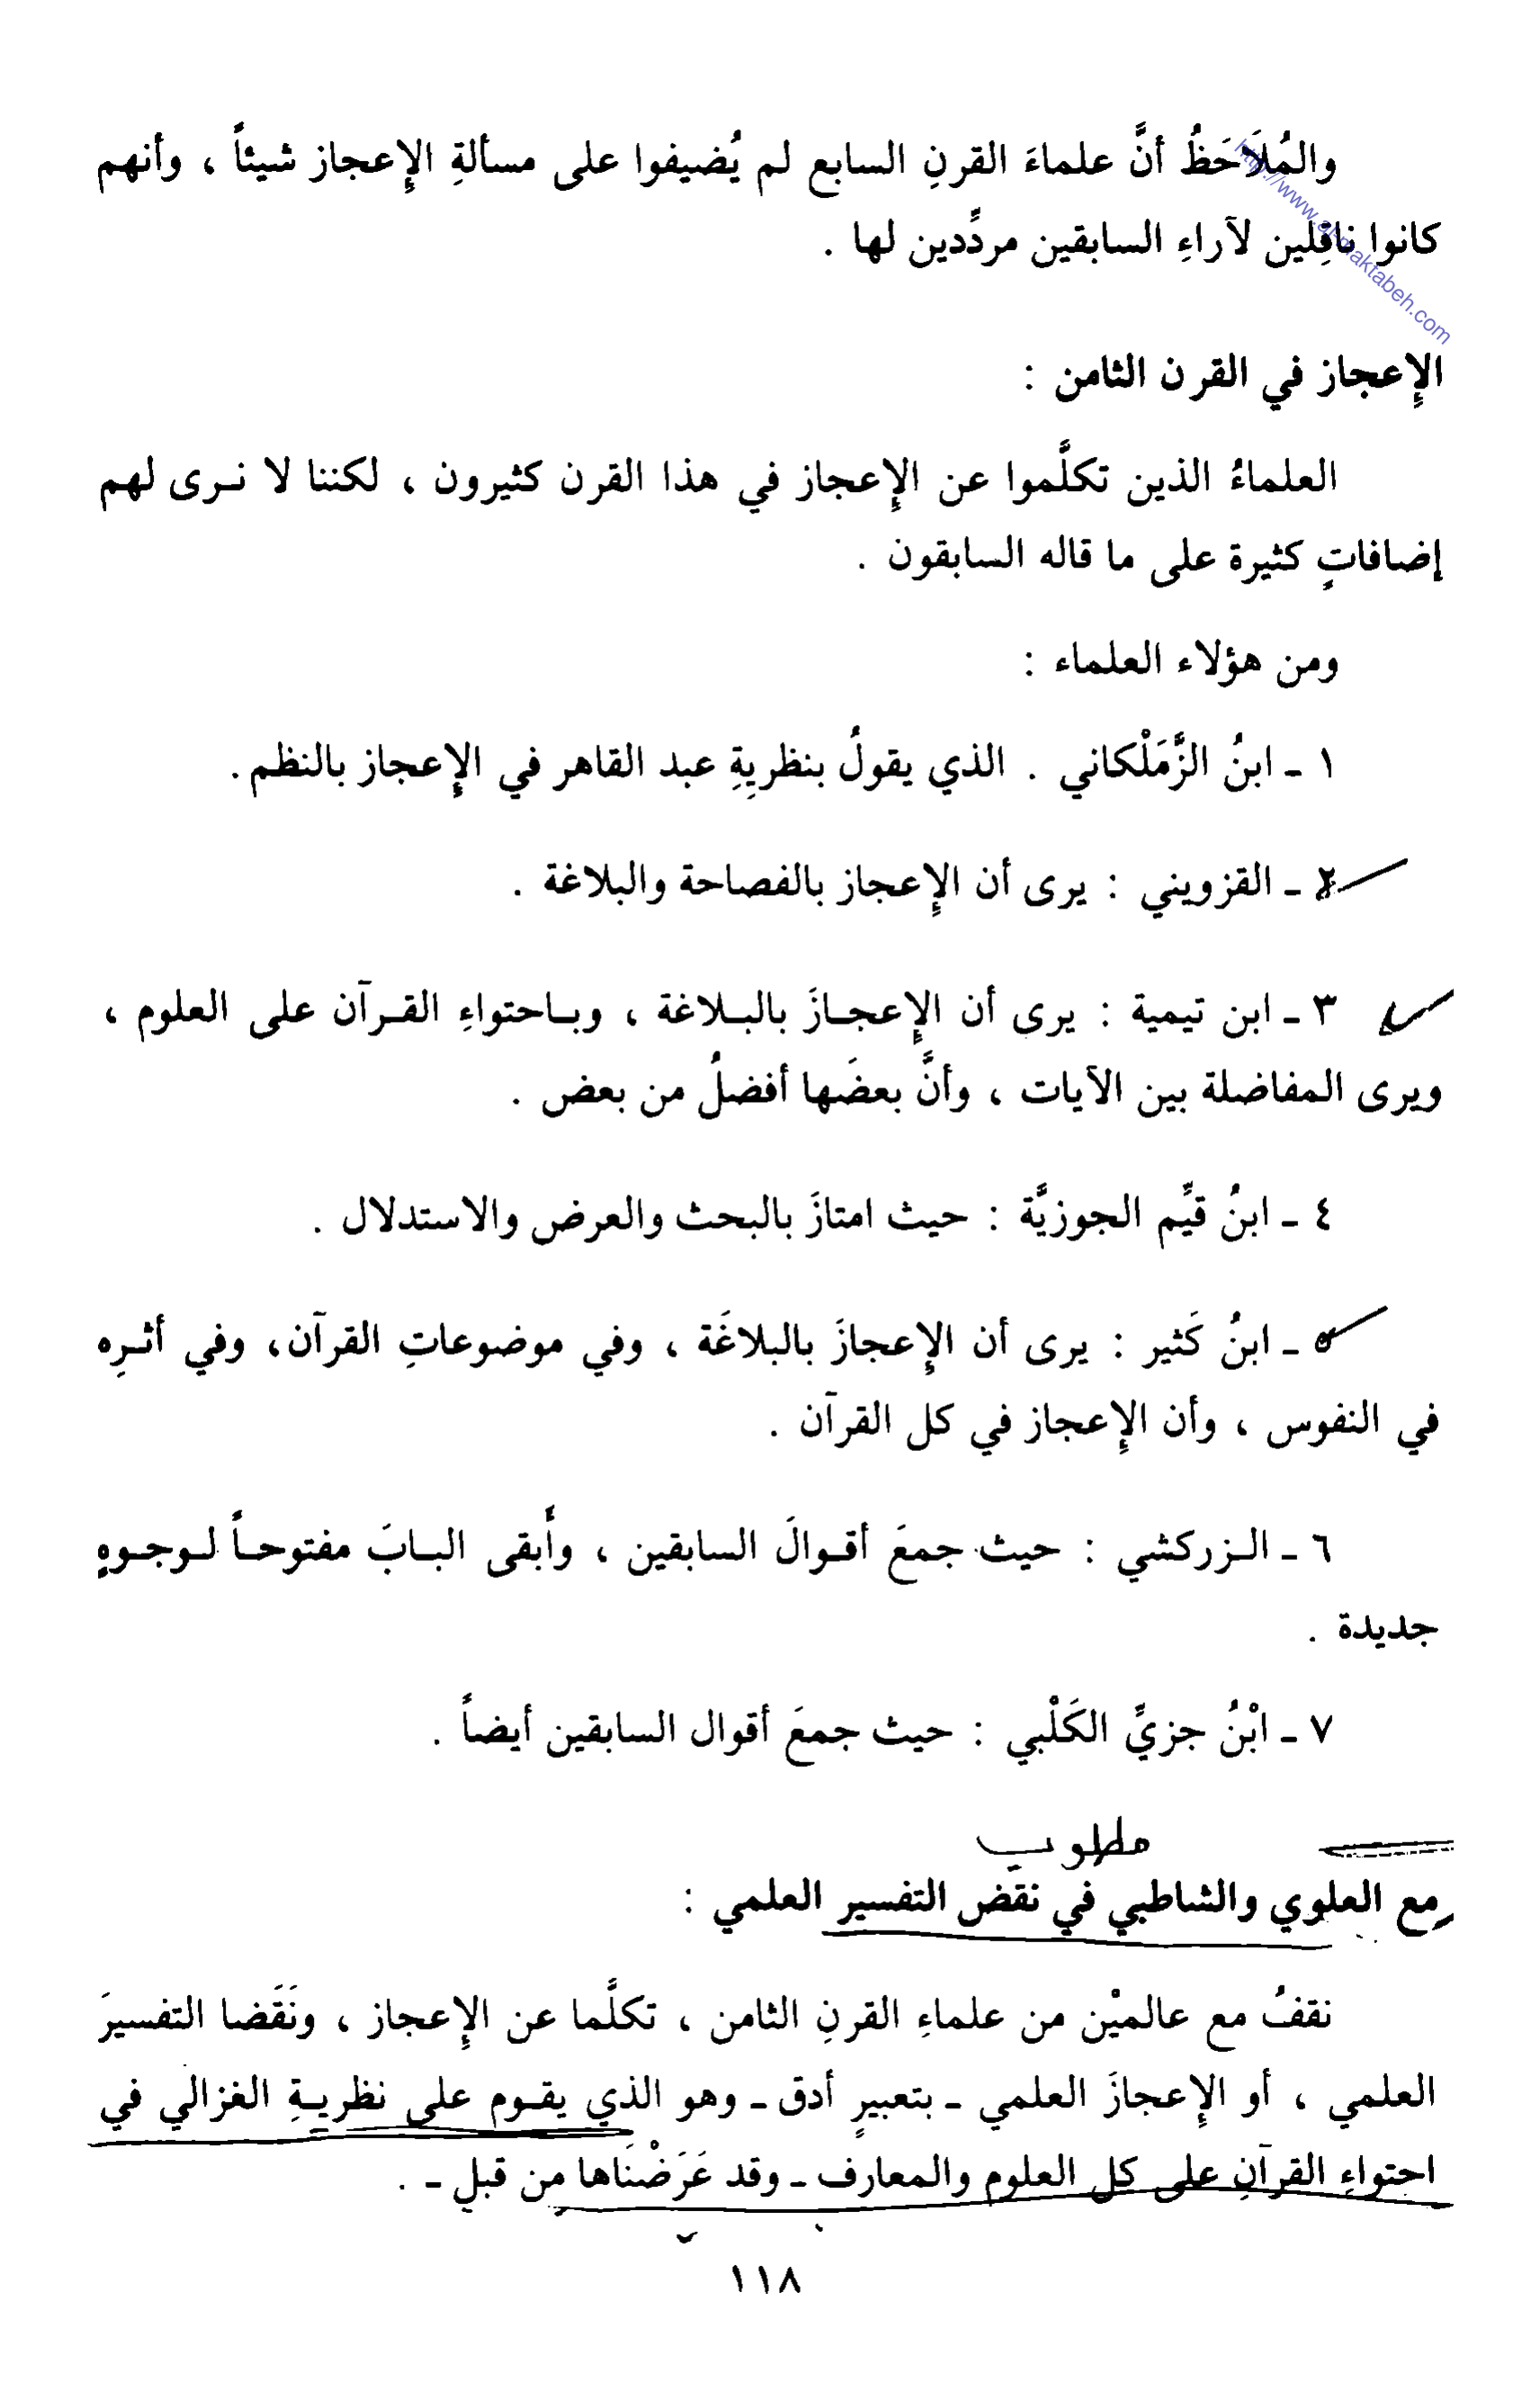 والمُلاَحَظُ أنَّ علماءَ القرنِ السابع لم يُضيفوا على مسألةِ الإِعجاز شيئاً ، وأنهم
كانوا ناقِلين لآراءِ السابقين مردِّدين لها .
http://www.al-maktabeh.com
الإِعجاز في القرن الثامن :
العلماءُ الذين تكلَّموا عن الإِعجاز في هذا القرن كثيرون ، لكننا لا نـرى لهم
إضافاتٍ كثيرة على ما قاله السابقون .
ومن هؤلاء العلماء :
١ ـ ابنُ الزَّمَلْكاني . الذي يقولُ بنظريةِ عبد القاهر في الإِعجاز بالنظم .
٢ ـ القزويني : يرى أن الإِعجاز بالفصاحة والبلاغة .
٣ ـ ابن تيمية : يرى أن الإِعجـازَ بالبـلاغة ، وبـاحتواءِ القـرآن على العلوم ،
ويرى المفاضلة بين الآيات ، وأنَّ بعضَها أفضلُ من بعض .
٤ ـ ابنُ قيِّم الجوزيَّة : حيث امتازَ بالبحث والعرض والاستدلال .
٥ ـ ابنُ كَثير : يرى أن الإِعجازَ بالبلاغَة ، وفي موضوعاتِ القرآن، وفي أثـرِه
في النفوس ، وأن الإِعجاز في كل القرآن .
٦ ـ الـزركشي : حيث جمعَ أقـوالَ السابقين ، وأَبقى البـابَ مفتوحـاً لـوجـوهٍ
جديدة .
٧ ـ ابْنُ جزيِّ الكَلْبي : حيث جمعَ أقوال السابقين أيضاً .
مطلوب
مع العلوي والشاطبي في نقض التفسير العلمي :
نقفُ مع عالميْن من علماءِ القرنِ الثامن ، تكلَّما عن الإِعجاز ، ونَقَضا التفسيرَ
العلمي ، أو الإِعجازَ العلمي ـ بتعبيرٍ أدق ـ وهو الذي يقـوم على نظريـةِ الغزالي في
احتواءِ القرآنِ على كل العلوم والمعارف ـ وقد عَرَضْنَاها من قبل ـ .
١١٨